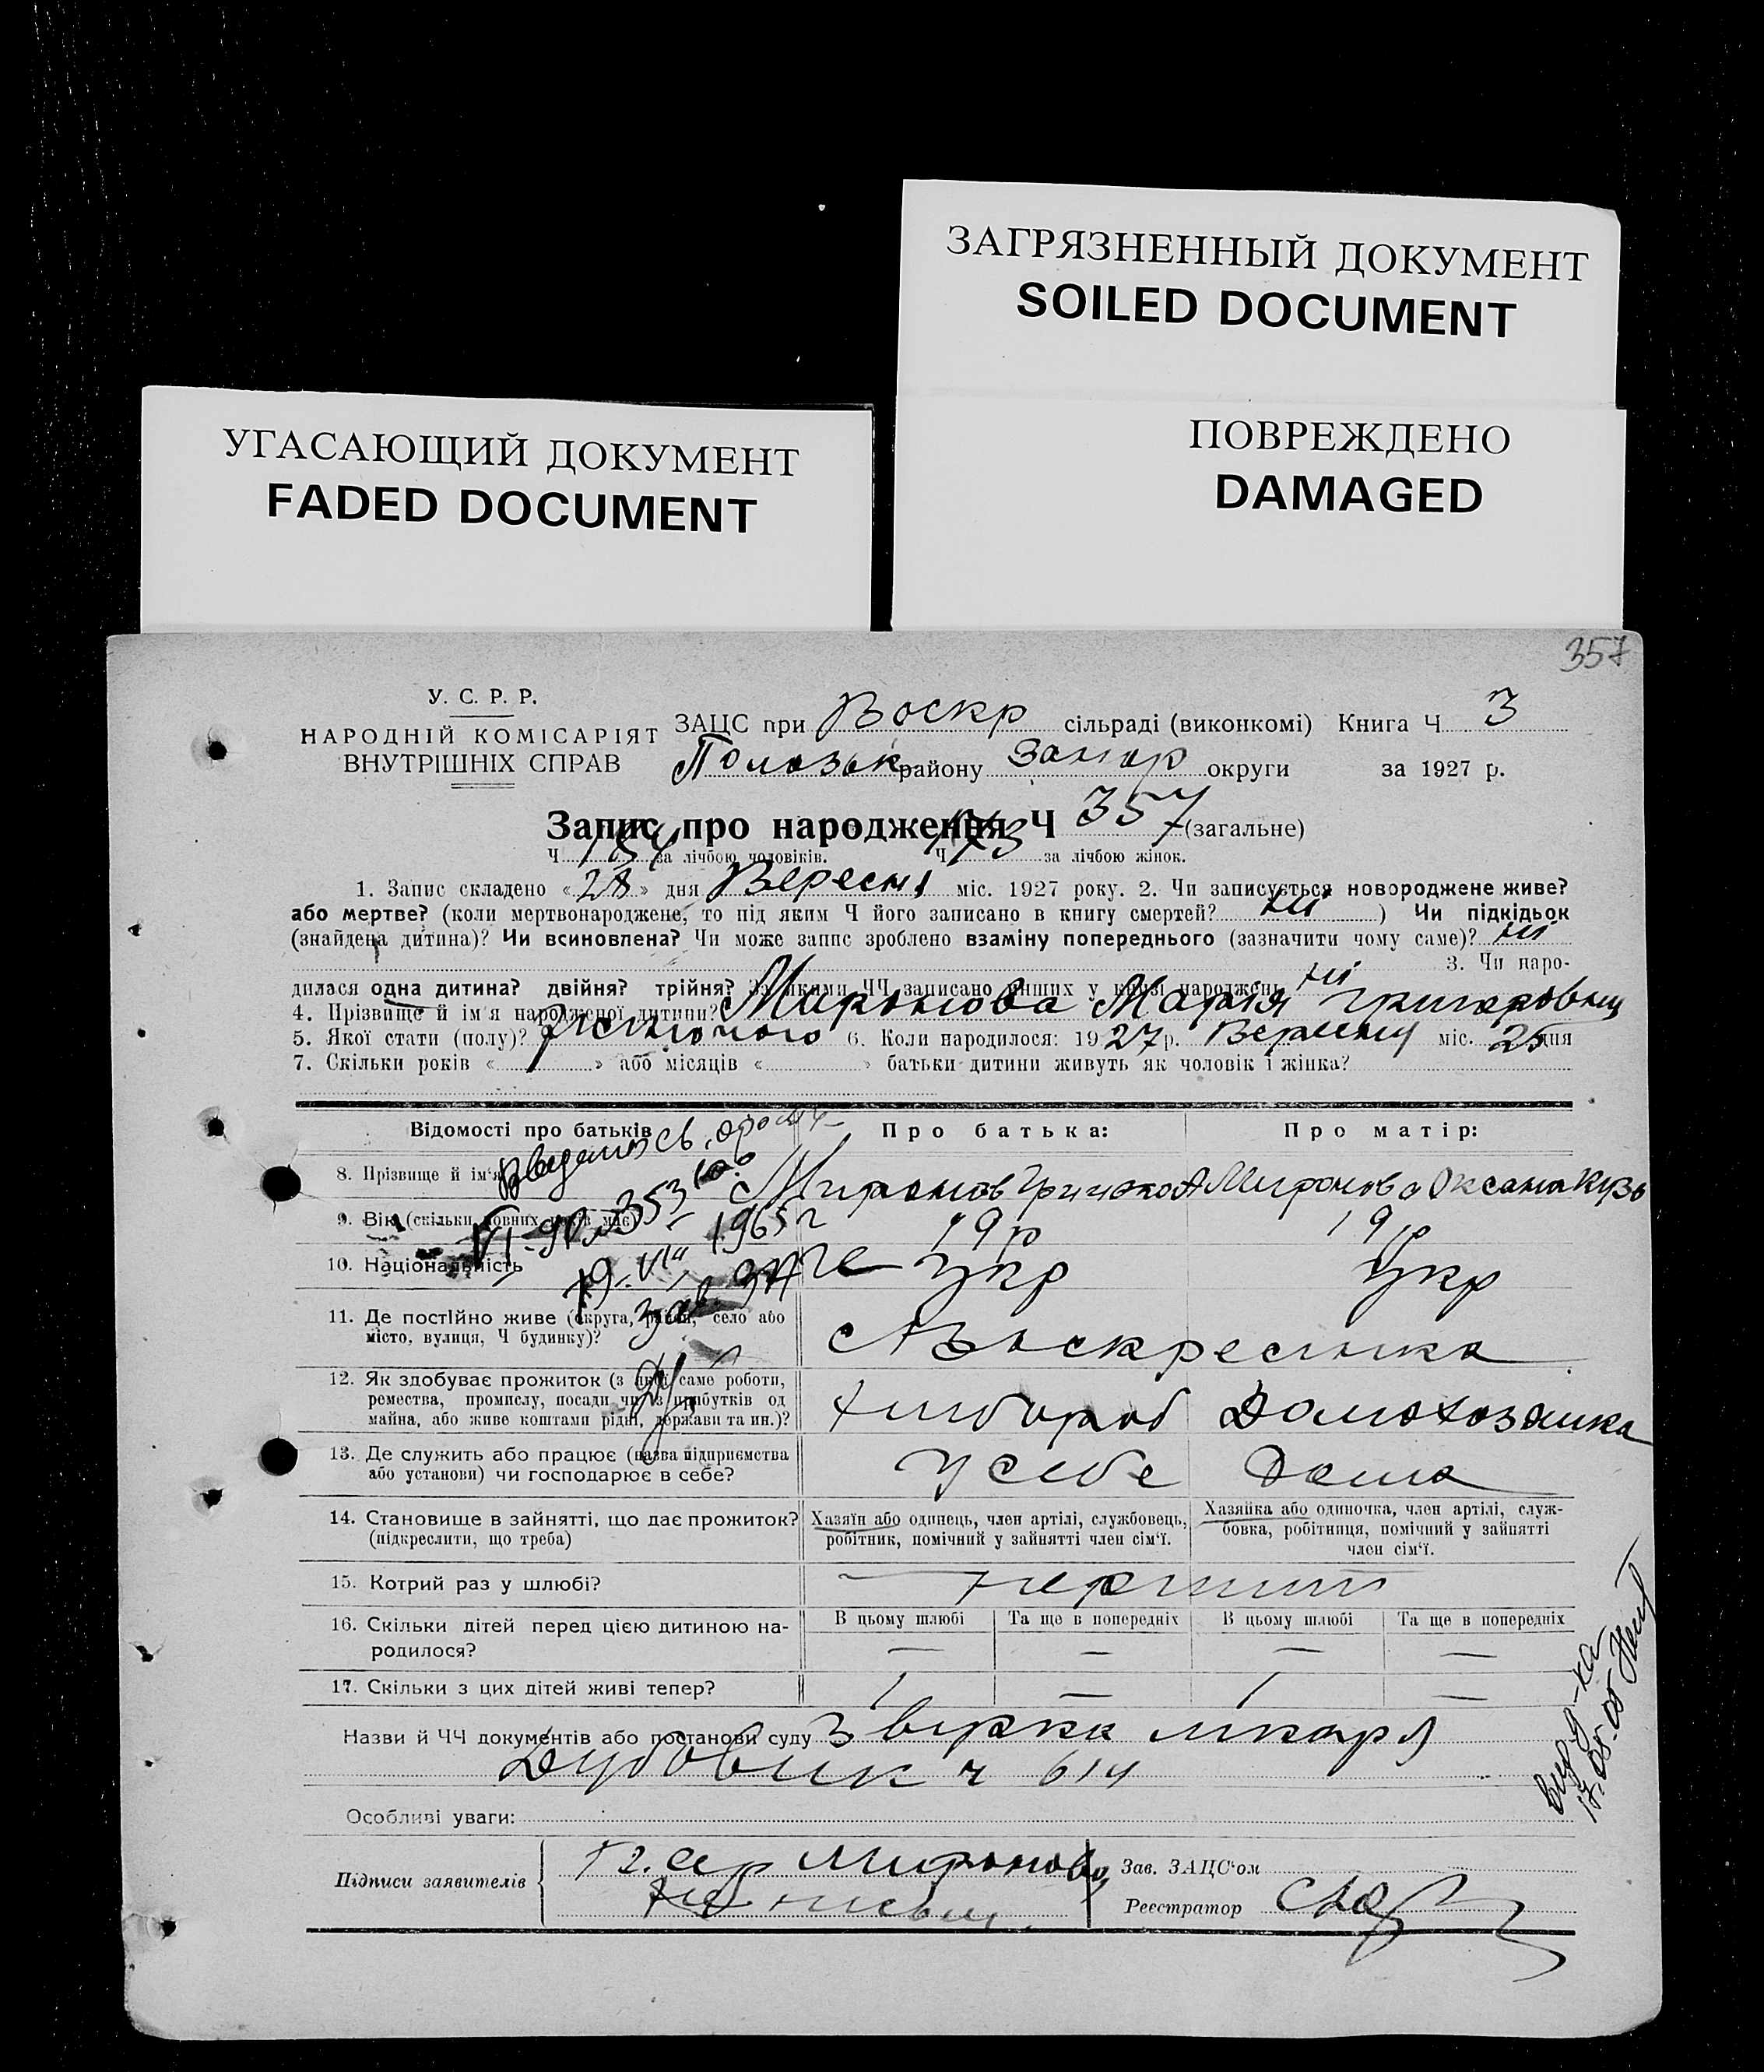 ЗАГРЯЗНЕННЫЙ ДОКУМЕНТ
SOILED DOCUMENT
УГАСАЮЩИЙ ДОКУМЕНТ
FADED DOCUMENT
ПОВРЕЖДЕНО
DAMAGED
357
У. С. Р. Р.
НАРОДНІЙ КОМІСАРІЯТ
ВНУТРІШНІХ СПРАВ
ЗАЦС при Воскр сільраді (виконкомі) Книга Ч 3
району Запор округи за 1927 р.
Запис про народження Ч 357 (загальне)
Ч 184 за лічбою чоловіків. Ч 173 за лічбою жінок.
1. Запис складено « 28 » дня Вересня міс. 1927 року. 2. Чи записується новороджене живе?
або мертве? (коли мертвонароджене, то під яким Ч його записано в книгу смертей? ні ) Чи підкідьок
(знайдена дитина)? Чи всиновлена? Чи може запис зроблено взаміну попереднього (зазначити чому саме)? ні
3. Чи наро-
дилася одна дитина? двійня? трійня? За якими ЧЧ записано инших у книзі народжень ні
4. Прізвище й ім'я народженої дитини? Миронова Марія Григоровна
5. Якої стати (полу)? жиночого 6. Коли народилося: 1927 р. Вересня міс. 25 дня
7. Скільки років « » або місяців « » батьки дитини живуть як чоловік і жінка?
Відомості про батьків
Про батька:
Про матір:
8. Прізвище й ім'я Миронов Миронова Оксана
9. Вік (скільки повних років має) 19 р 19 р
353
1965 г
10. Національність Укр Укр
19. VIII
зав. ЗАГС
11. Де постійно живе (округа, район, село або
місто, вулиця, Ч будинку)?
с Воскресенка
12. Як здобуває прожиток (з якої саме роботи,
ремества, промислу, посади чи з прибутків од
майна, або живе коштами рідні, держави та ин.)?
хлібороб Домохозяика
13. Де служить або працює (назва підприємства
або установи) чи господарює в себе?
У себе Дома
14. Становище в зайнятті, що дає прожиток?
(підкреслити, що треба)
Хазяїн або одинець, член артілі, службовець,
робітник, помічний у зайнятті член сім'ї.
Хазяйка або одиночка, член артілі, служ-
бовка, робітниця, помічний у зайнятті
член сім'ї.
15. Котрий раз у шлюбі? перший
16. Скільки дітей перед цією дитиною на-
родилося?
В цьому шлюбі Та ще в попередніх В цьому шлюбі Та ще в попередніх
— — — —
17. Скільки з цих дітей живі тепер? 1 — 1 —
Назви й ЧЧ документів або постанови суду З
Дубовик ч 614
Особливі уваги:
Підписи заявителів
Миронова
Зав. ЗАЦС'ом
Реєстратор
17.08.00